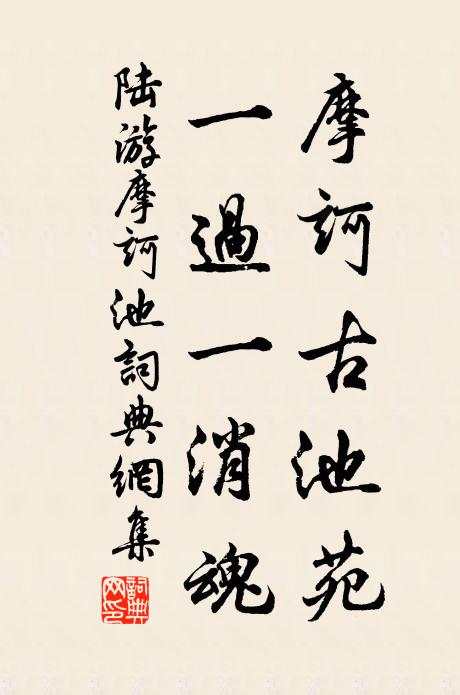 摩訶古池苑
一過一消魂
陸游摩訶池詞典網集
詞典
网印